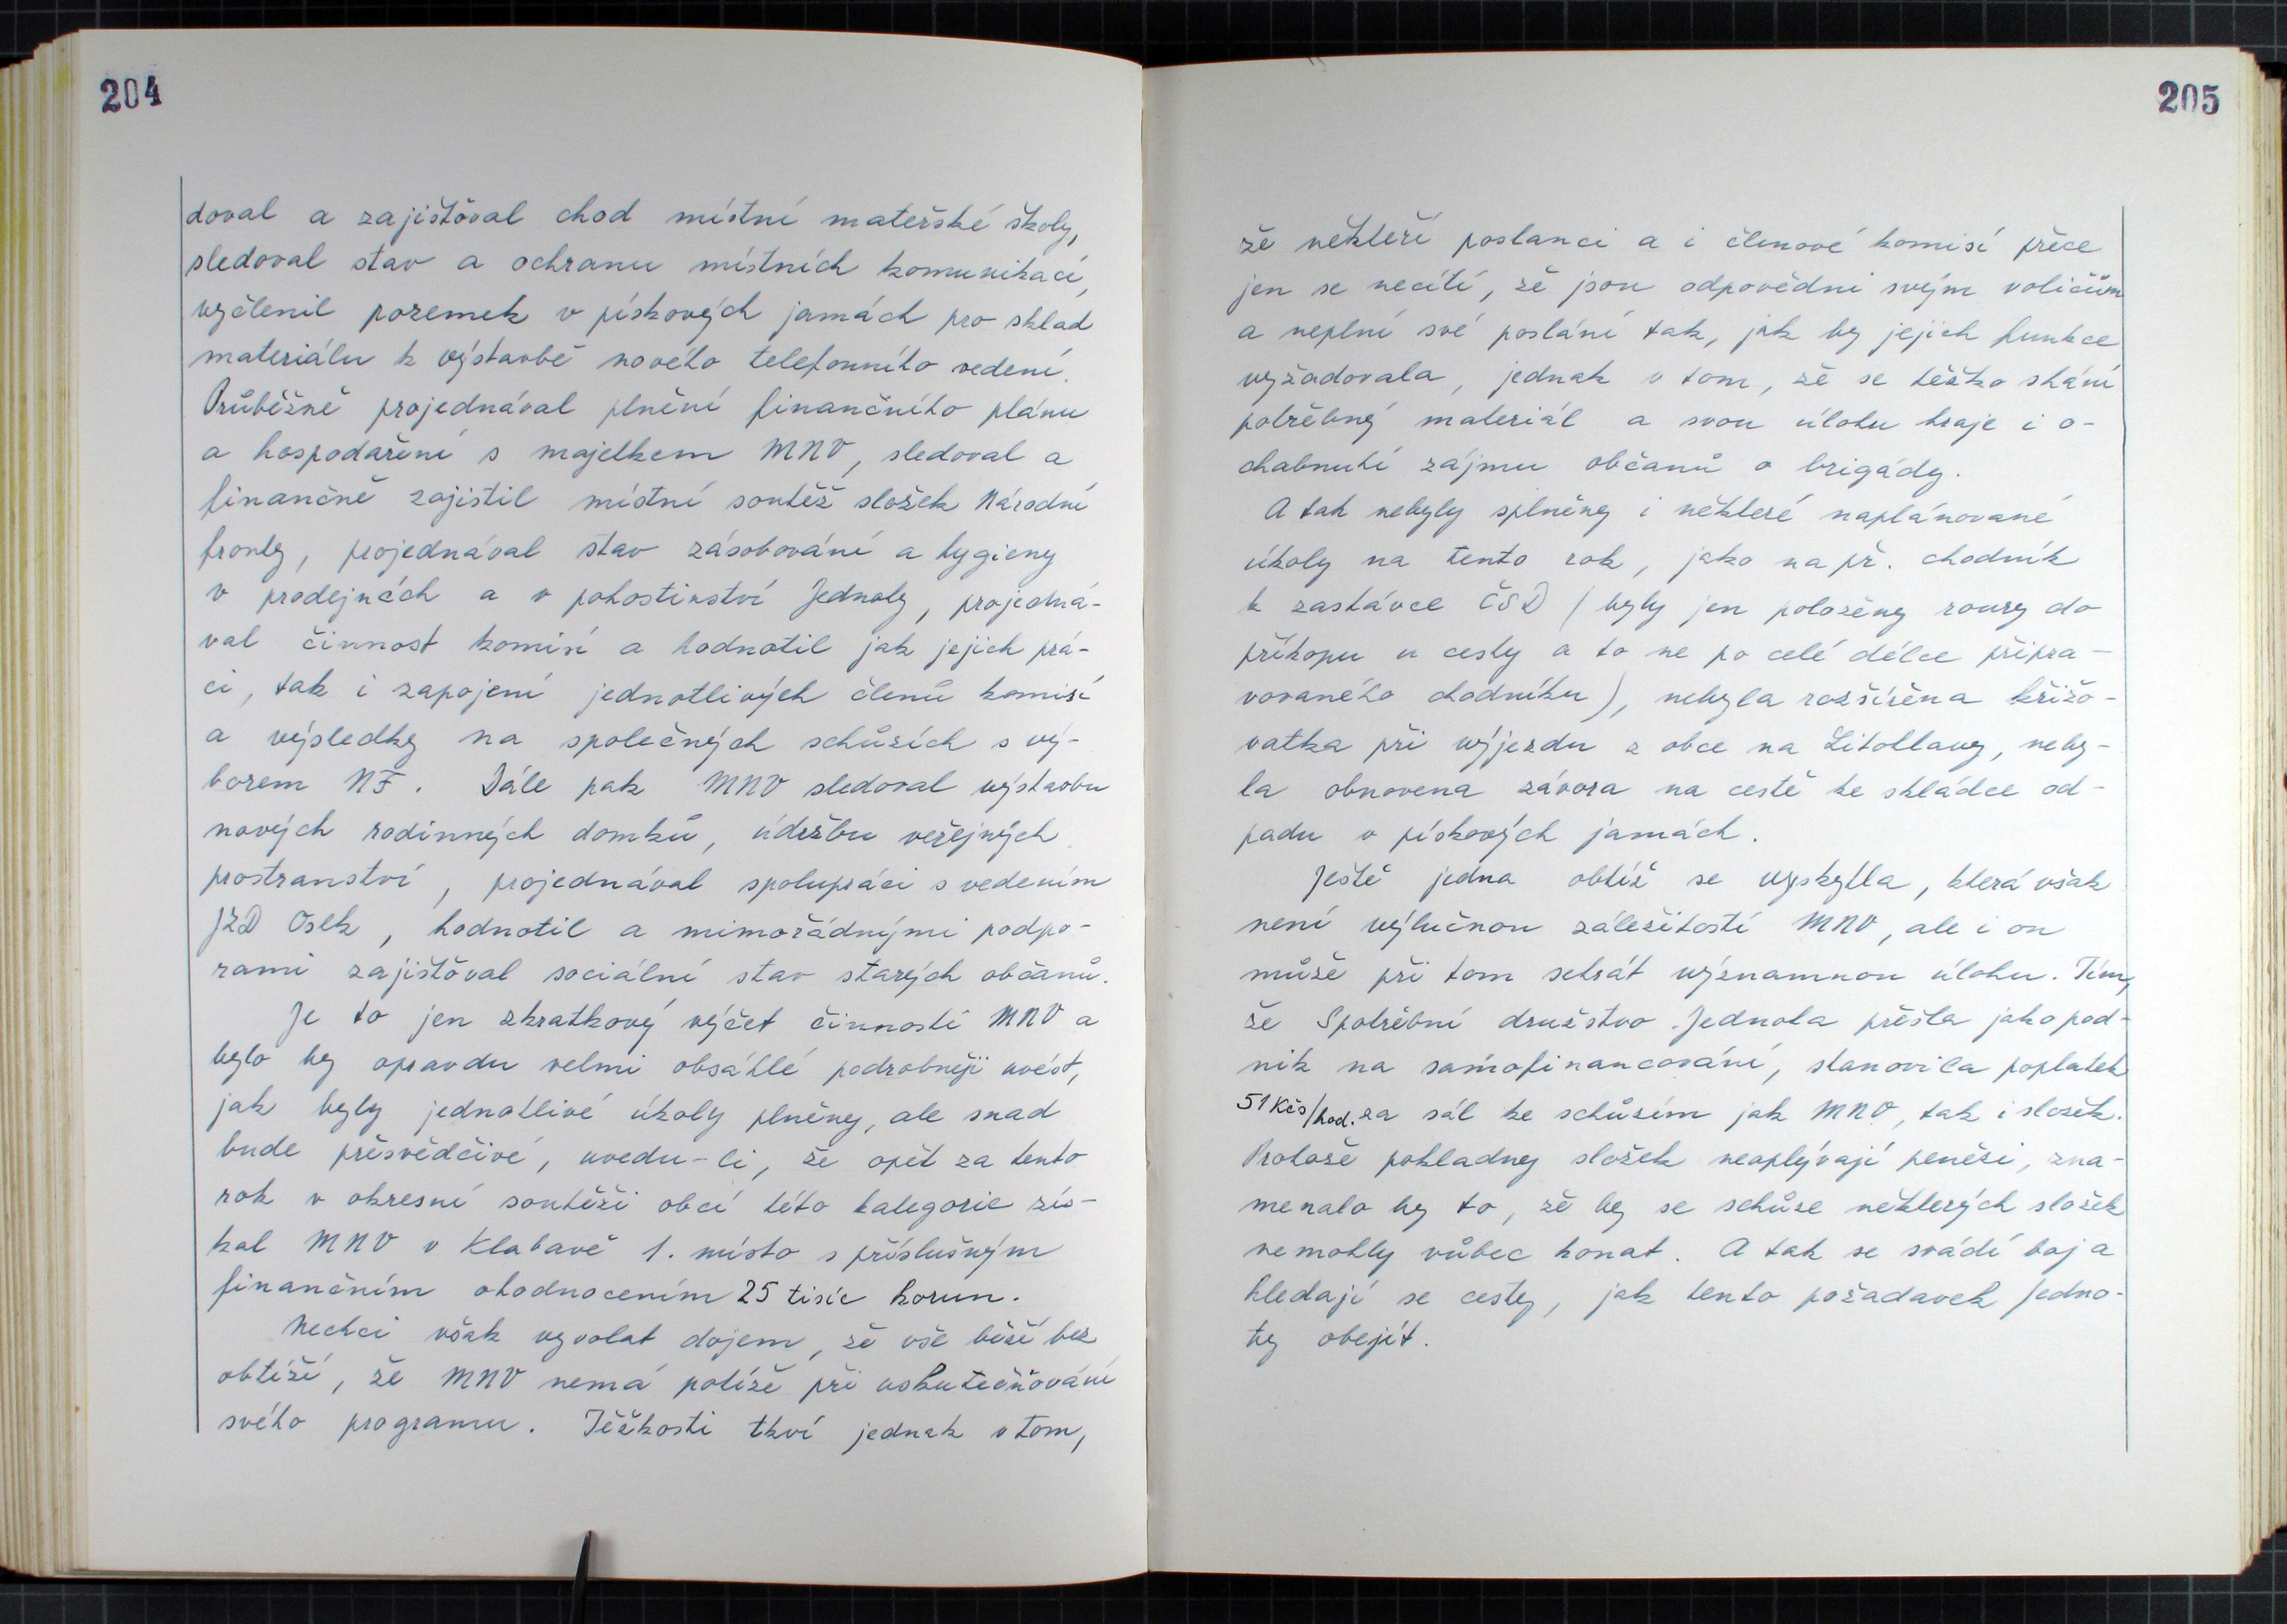 204
doval a zajišťoval chod místní mateřské školy,
sledoval stav a ochranu místních komunikací,
vyčlenil pozemek v pískových jamách pro sklad
materiálu k výstavbě nového telefonního vedení.
Průběžně projednával plnění finančního plánu
a hospodaření s majetkem MNV, sledoval a
finančně zajistil místní soutěž složek Národní
fronty, projednával stav zásobování a hygieny
v prodejnách a v pohostinství Jednoty, projedná-
val činnost komisí a hodnotil jak jejich prá-
ci, tak i zapojení jednotlivých členů komisí
a výsledky na společných schůzích s vý-
borem NF. Dále pak MNV sledoval výstavbu
nových rodinných domků, údržbu veřejných
prostranství, projednával spolupráci s vedením
JZD Osek, hodnotil a mimořádnými podpo-
rami zajišťoval sociální stav starých občanů.
Je to jen zkratkový výčet činnosti MNV a
bylo by opravdu velmi obsáhlé podrobněji uvést,
jak byly jednotlivé úkoly plněny, ale snad
bude přesvědčivé, uvedu-li, že opět za tento
rok v okresní soutěži obcí této kategorie zís-
kal MNV v Klabavě 1. místo s příslušným
finančním ohodnocením 25 tisíc korun.
Nechci však vyvolat dojem, že vše běží bez
obtíží, že MNV nemá potíže při uskutečňování
svého programu. Těžkosti tkví jednak v tom,
205
že někteří poslanci a i členové komisí přece
jen se necítí, že jsou odpovědni svým voličům
a neplní své poslání tak, jak by jejich funkce
vyžadovala, jednak v tom, že se těžko shání
potřebný materiál a svou úlohu hraje i o-
chabnutí zájmu občanů o brigády.
A tak nebyly splněny i některé naplánované
úkoly na tento rok, jako na př. chodník
k zastávce ČSD (byly jen položeny roury do
příkopu u cesty a to ne po celé délce připra-
vovaného chodníku), nebyla rozšířena křižo-
vatka při výjezdu z obce na Litohlavy, neby-
la obnovena závora na cestě ke skládce od-
padu v pískových jamách.
Ještě jedna obtíž se vyskytla, která však
není výlučnou záležitostí MNV, ale i on
může při tom sehrát významnou úlohu. Tím,
že Spotřební družstvo Jednota přešla jako pod-
nik na samofinancování, stanovila poplatek
51 Kčs/hod. za sál ke schůzím jak MNV, tak i složek.
Protože pokladny složek neoplývají penězi, zna-
menalo by to, že by se schůze některých složek
nemohly vůbec konat. A tak se svádí boj a
hledají se cesty, jak tento požadavek Jedno-
ty obejít.